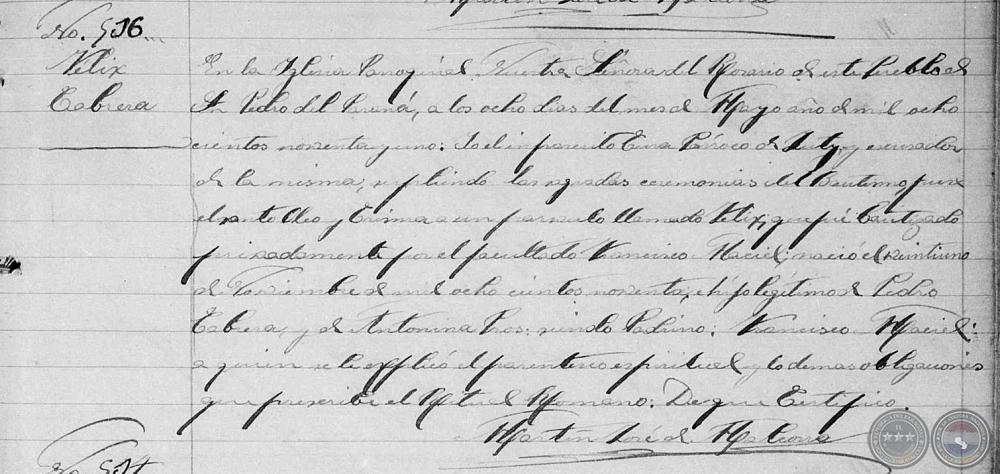 No. 516
Felix
Cabrera
En la Iglesia Parroquial, Nuestra Señora del Rosario de este Pueblo de
Sn Pedro del Paraná, a los ocho dias del mes de Mayo año de mil ocho
cientos noventa y uno: Yo el infrascrito Cura Párroco de Yuty, y escusador
de la misma; supliendo las sagradas ceremonias del Bautismo, puse
el santo Oleo y Crisma a un parvulo llamado Felix, que fué bautizado
privadamente por el facultado Francisco Maciel; nació el veintiuno
de Noviembre de mil ocho cientos noventa, é hijo legítimo de Pedro
Cabrera, y de Antonina Rios: siendo Padrino: Francisco Maciel:
a quien se le esplicó el parentesco espiritual y lo demas obligaciones
que prescribe el Ritual Romano: De que Certifico.
Martin José de